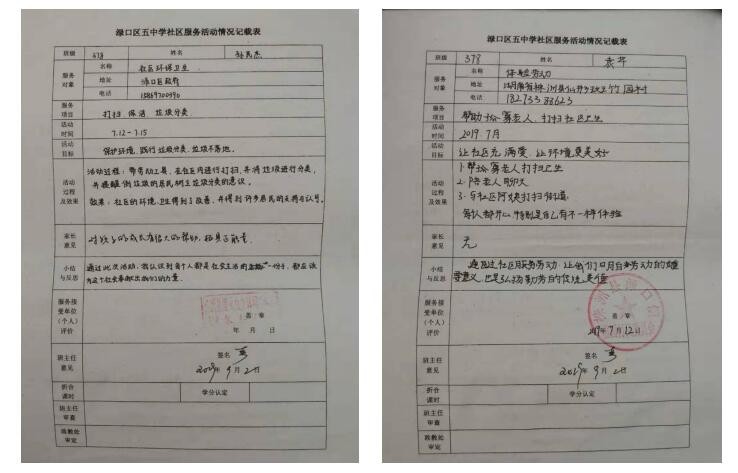 渌口区五中学社区服务活动情况记载表
班级 378 姓名 孙民杰
服务对象
名称 社区环保卫生
地址 渌口区政府
电话
服务项目 打扫、保洁、垃圾分类
活动时间 7.12-7.15
活动目标 保护环境,践行垃圾分类,垃圾不落地。
活动过程及效果
活动过程:带劳动工具,在社区内进行打扫,并将垃圾进行分类,
并提醒倒垃圾的居民树立垃圾分类的意识。
效果:社区的环境卫生得到了改善,并得到许多居民的支持与认可。
家长意见 对孩子的成长有很大的帮助,极具正能量。
小结与反思
通过此次活动,我认识到每个人都是社会生活的一份子,都应该
为这个社会奉献出我们的力量。
服务接受单位(个人)评价
盖章
年 月 日
班主任意见
签名
2019年9月2日
折合课时 学分认定
班主任审查
政教处审定
渌口区五中学社区服务活动情况记载表
班级 378 姓名 袁华
服务对象
名称 体验劳动
地址
电话 18273388623
服务项目 帮助孤寡老人,打扫社区卫生
活动时间 2019.7月
活动目标 让社区充满爱,让环境更美好
活动过程及效果
1.帮孤寡老人打扫卫生
2.陪老人聊天
3.与社区阿姨打扫街道
每人都开心,特别是自己有不一样体验
家长意见 无
小结与反思
通过社区服务劳动,让我们明白劳动的重
要意义,也是弘扬劳动的传统美德
服务接受单位(个人)评价
盖章
2019年7月12日
班主任意见
签名
2019年9月2日
折合课时 学分认定
班主任审查
政教处审定